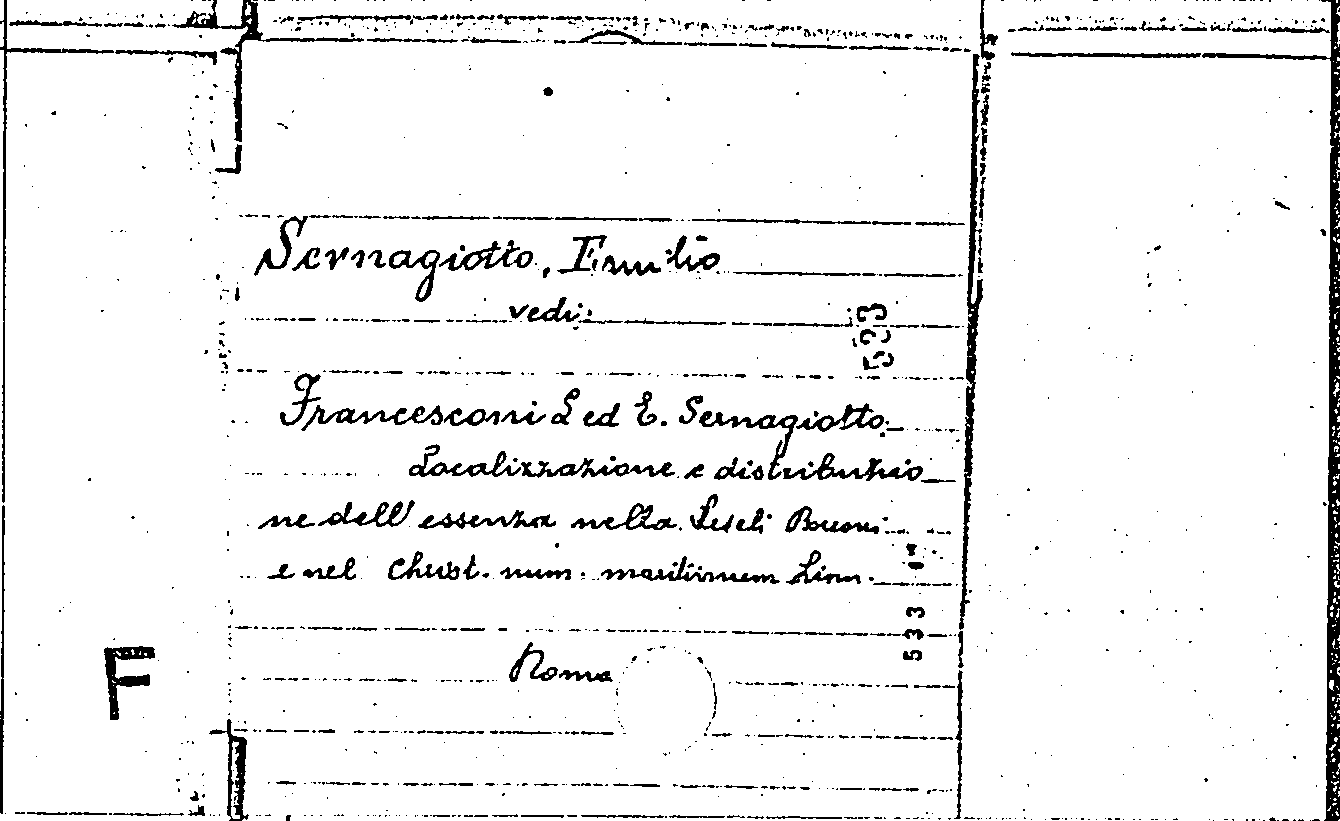 Sernagiotto, Emilio
vedi:
533
Francesconi L ed E. Sernagiotto
Localizzazione e distribuzio
ne dell'essenza nella Seseli Bocconi
e nel Christ. num. maritimum Linn.
533
Roma
F